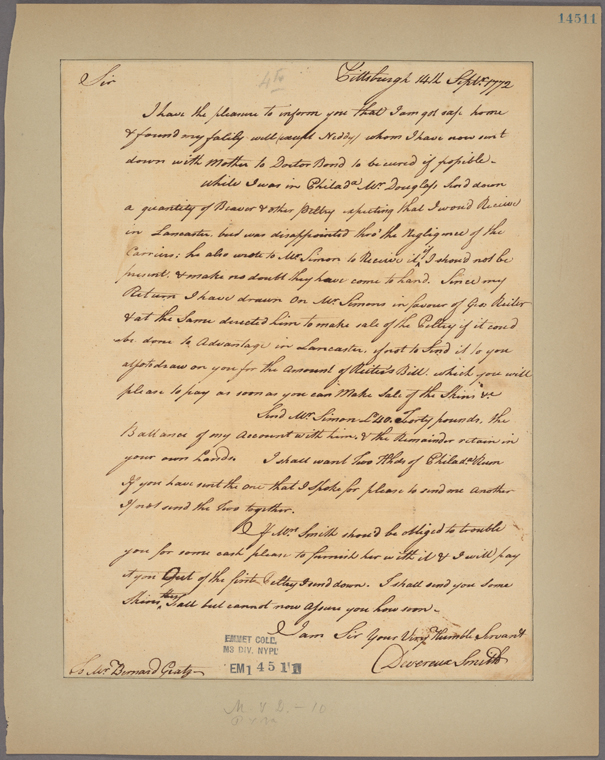 14511
4th
Pittsburgh 14th Septr. 1772
Sir
I have the pleasure to inform you that I am got safe home
& found my family well (except Neddy) whom I have now sent
down with Mother to Doctor Bond to be cured if possible -
While I was in Philada. Mr. Douglass Send down
a quantity of Beaver & other Peltry expecting that I woud Receive
in Lancaster, but was disappointed thro' the Negligence of the
Carriers; he also wrote to Mr. Simon to Receive it, if I should not be
present. & make no doubt they have come to hand. Since my
Return I have drawn on Mr. Simons in favour of Geo. Reiter
& at the Same directed him to make sale of the Peltry if it coud
be done to Advantage in Lancaster, if not to Send it to you
also to draw on you for the Amount of Reiter's Bill. which you will
please to pay as soon as you can Make Sale of the Skins &c
Send Mr. Simon L40. Forty pounds, the
Ballance of my Account with him, & the Remainder retain in
your own hands. I shall want Two Hhds of Philada. Rum
If you have sent the one that I spoke for please to send me another
If not send the Two together.
If Mrs. Smith should be obliged to trouble
you for some cash please to furnish her with it & I will pay
it you Out of the first Peltry I send down. I shall send you Some
Skins this Fall but cannot now assure you how soon -
I am Sir Your Very Humble Servant
Devereux Smith
To Mr. Bernard Gratz
EMMET COLL.
MS DIV. NYPL
EM 14511